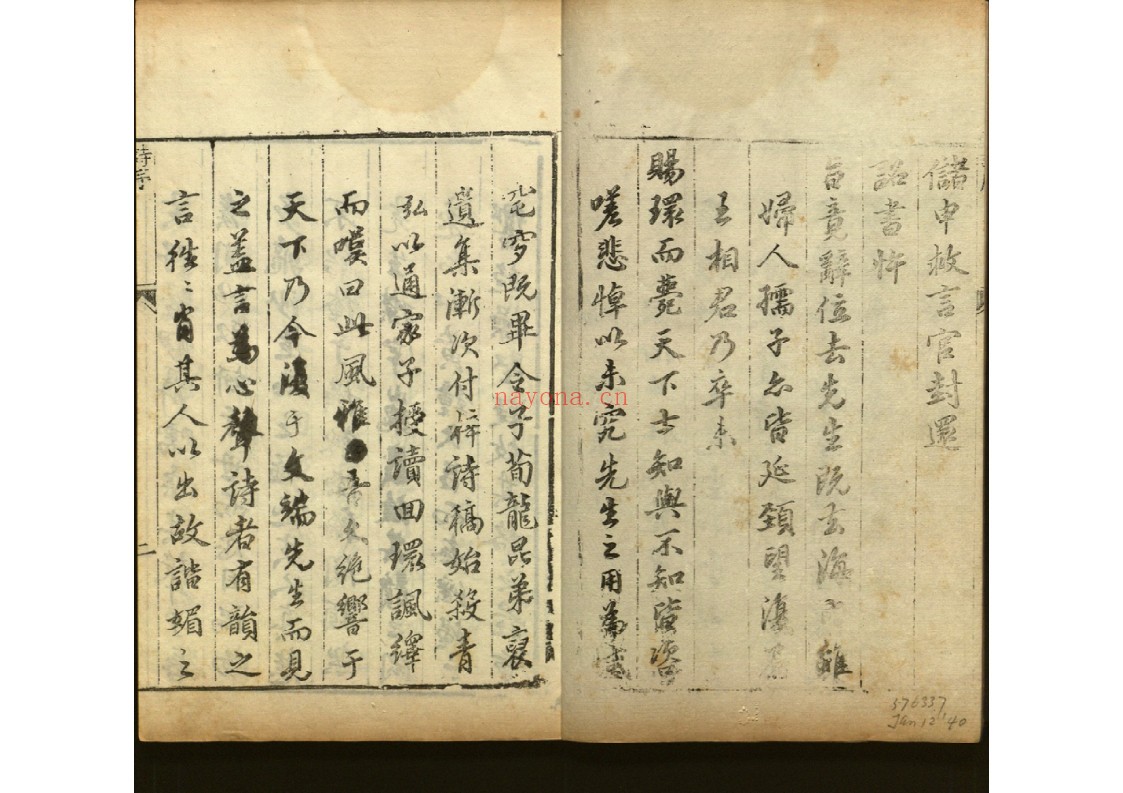 儲申救言官封還
詔書忤
旨竟辭位去先生既去海內雖
婦人孺子亦皆延頸望復為
王相君乃卒未
賜環而薨天下士知與不知皆咨
嗟悲悼以未究先生之用為
窀穸既畢令子荀龍昆弟裒
遺集漸次付梓詩稿始殺青
弘以通家子授讀回環諷繹
而嘆曰此風雅吾久絕響于
天下乃今復于文端先生而見
之蓋言為心聲詩者有韻之
言往〻肖其人以出故諧媚之
詩序
二
576337
Jan 12 '40
nayona.cn